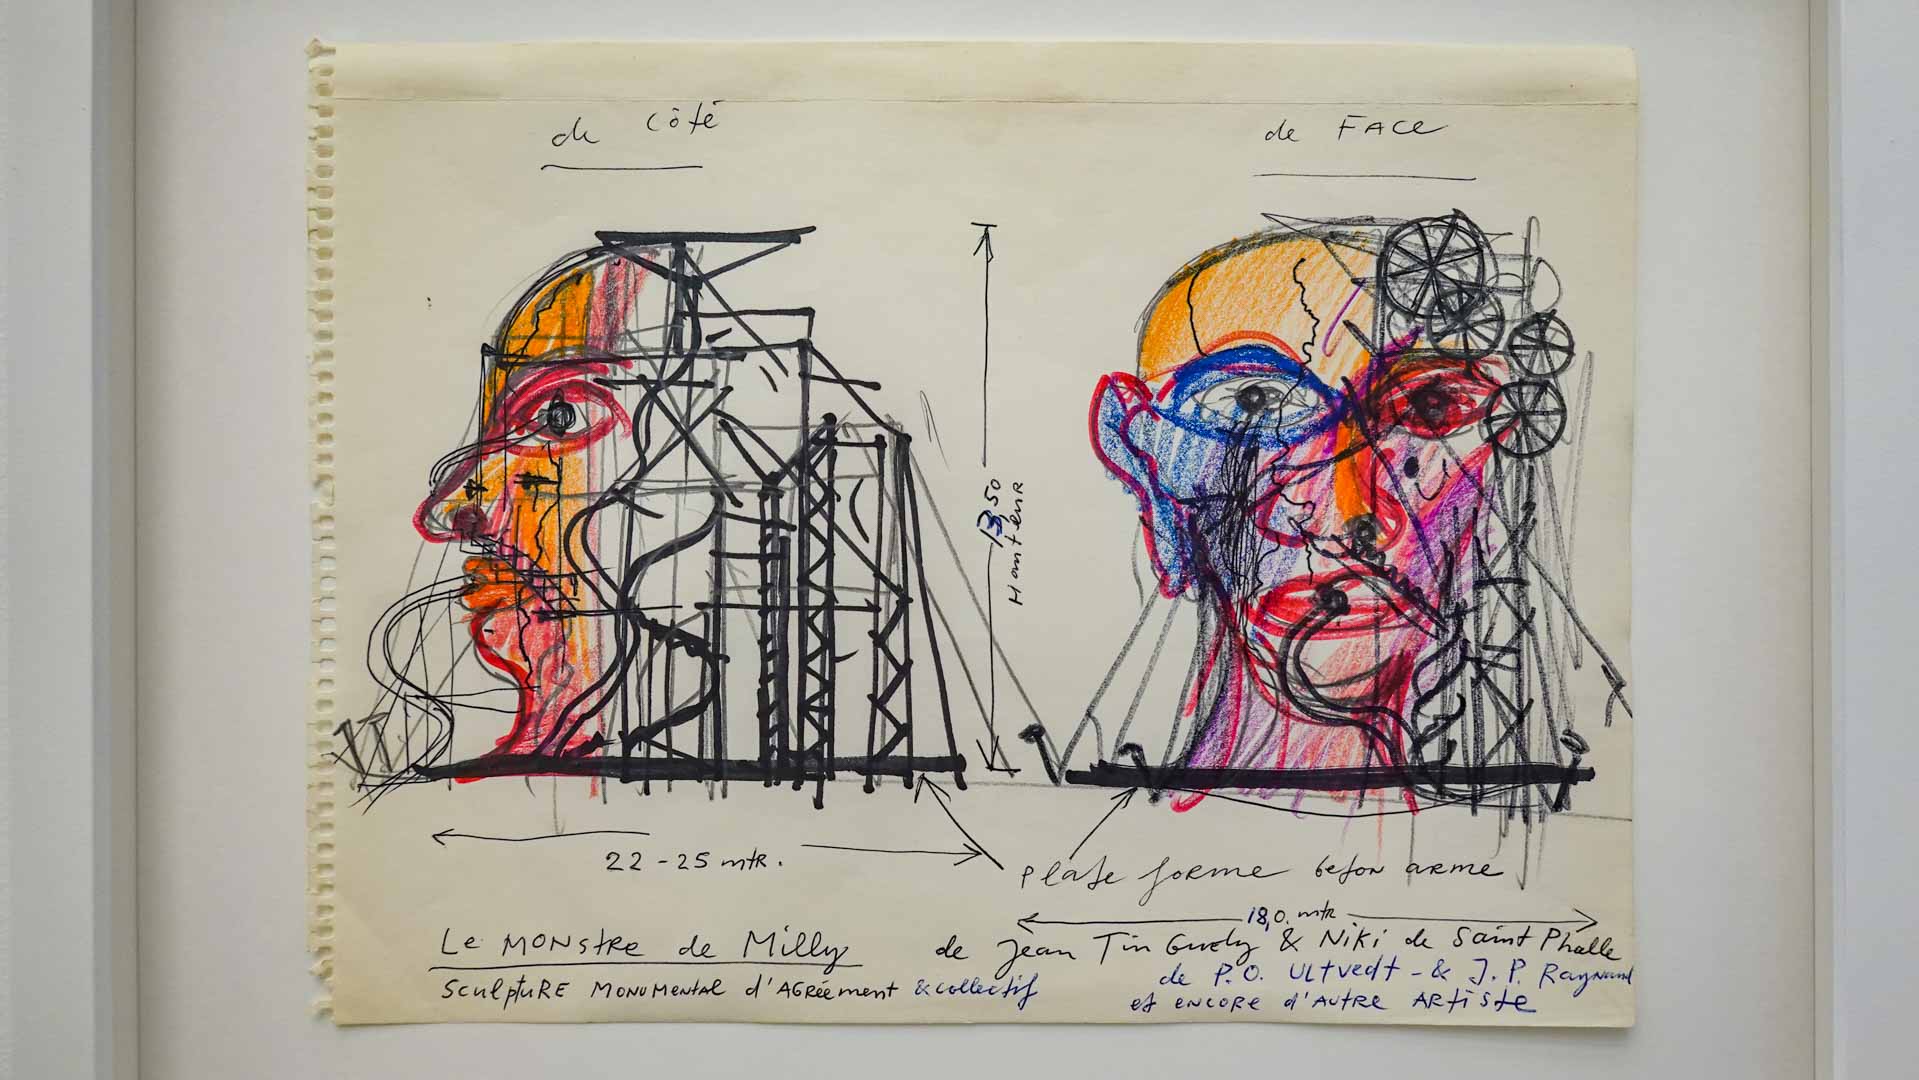 de côté
de FACE
13,50
Hauteur
22 - 25 mtr.
plate forme beton arme
18,0. mtr
Le MONStRe de Milly de Jean TinGuely & NiKi de Saint Phalle
SculptuRE MONUMENtal d'AGRéement & collectif de P.O. ULtvedt - & J.P. Raynaud
et ENCORE d'AUtRE ARtiste